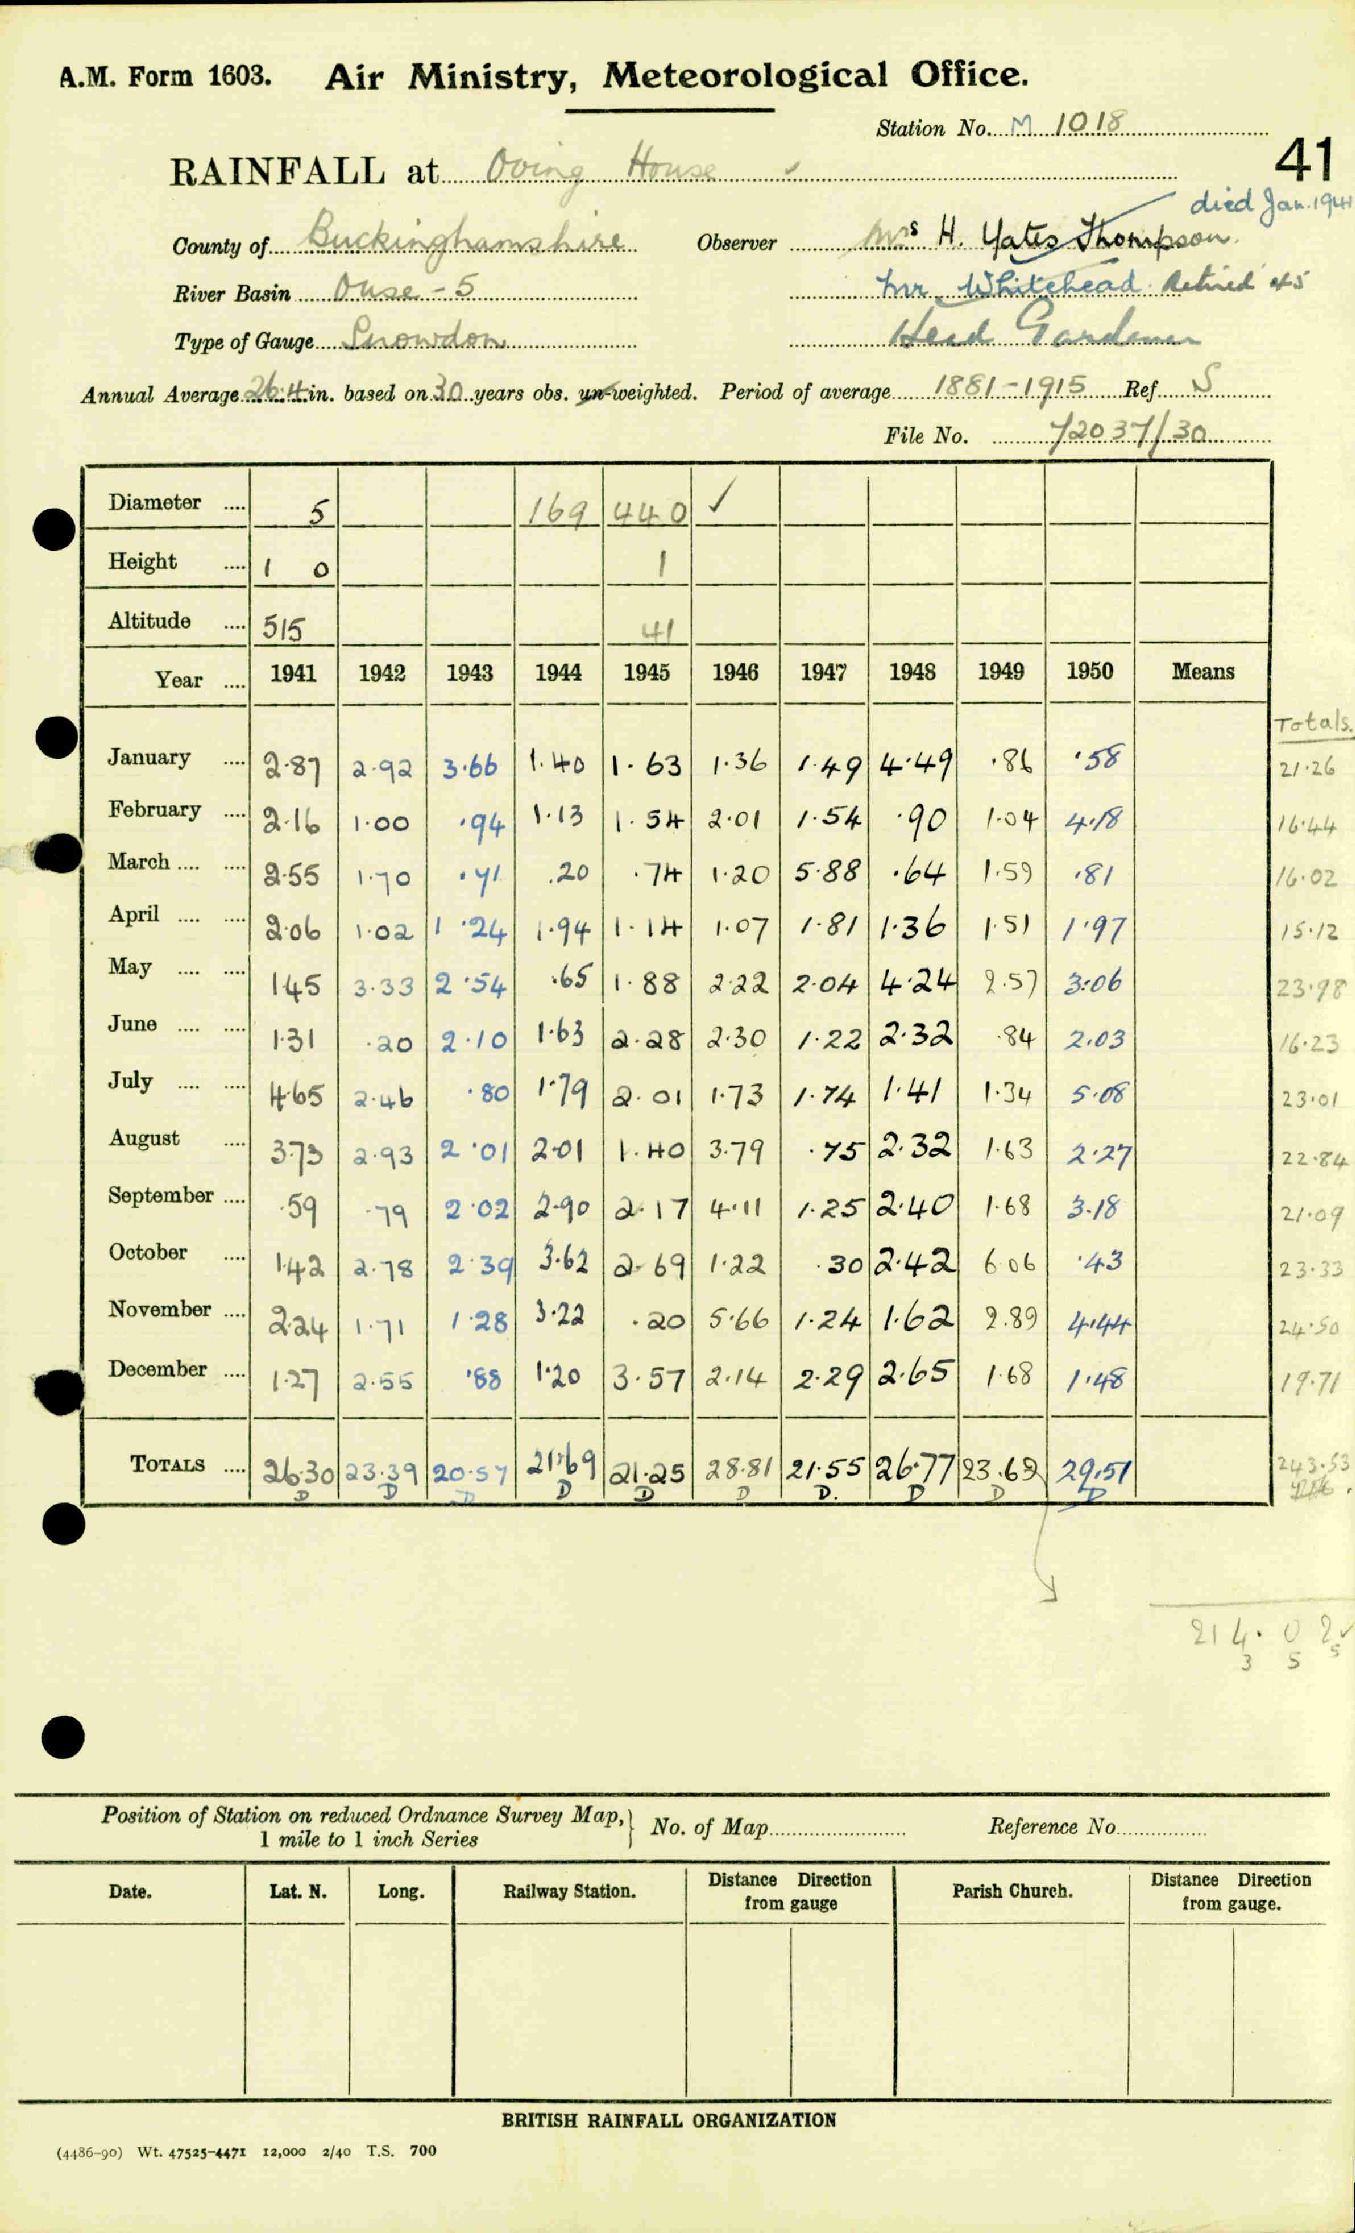 A.M. Form 1603. Air Ministry, Meteorological Office.
Station No. M 1018
41
RAINFALL at Oving House ✓
died Jan. 1941
County of Buckinghamshire Observer Mrs H. Yates Thompson
River Basin Ouse - 5 Mr Whitehead Retired '45
Type of Gauge Snowdon Head Gardener
Annual Average 26.4 in. based on 30 years obs. un-weighted. Period of average 1881-1915 Ref S
File No. 72037/30
Diameter .... 5 169 440 ✓
Height .... 1 0 1
Altitude .... 515 41
Year .... 1941 1942 1943 1944 1945 1946 1947 1948 1949 1950 Means
Totals.
January .... 2.87 2.92 3.66 1.40 1.63 1.36 1.49 4.49 .86 .58 21.26
February .... 2.16 1.00 .94 1.13 1.54 2.01 1.54 .90 1.04 4.18 16.44
March .... .... 2.55 1.70 .71 .20 .74 1.20 5.88 .64 1.59 .81 16.02
April .... .... 2.06 1.02 1.24 1.94 1.14 1.07 1.81 1.36 1.51 1.97 15.12
May .... .... 1.45 3.33 2.54 .65 1.88 2.22 2.04 4.24 2.57 3.06 23.98
June .... .... 1.31 .20 2.10 1.63 2.28 2.30 1.22 2.32 .84 2.03 16.23
July .... .... 4.65 2.46 .80 1.79 2.01 1.73 1.74 1.41 1.34 5.08 23.01
August .... 3.73 2.93 2.01 2.01 1.40 3.79 .75 2.32 1.63 2.27 22.84
September .... .59 .79 2.02 2.90 2.17 4.11 1.25 2.40 1.68 3.18 21.09
October .... 1.42 2.78 2.39 3.62 2.69 1.22 .30 2.42 6.06 .43 23.33
November .... 2.24 1.71 1.28 3.22 .20 5.66 1.24 1.62 2.89 4.44 24.50
December .... 1.27 2.55 .88 1.20 3.57 2.14 2.29 2.65 1.68 1.48 19.71
TOTALS .... 26.30 23.39 20.57 21.69 21.25 28.81 21.55 26.77 23.69 29.51 243.53
D D D D D D D. D D D
214.02 ✓
3 5 5
Position of Station on reduced Ordnance Survey Map, } No. of Map Reference No.
1 mile to 1 inch Series
Date. Lat. N. Long. Railway Station. Distance from gauge Direction Parish Church. Distance from gauge. Direction
BRITISH RAINFALL ORGANIZATION
(4486-90) Wt. 47525-4471 12,000 2/40 T.S. 700